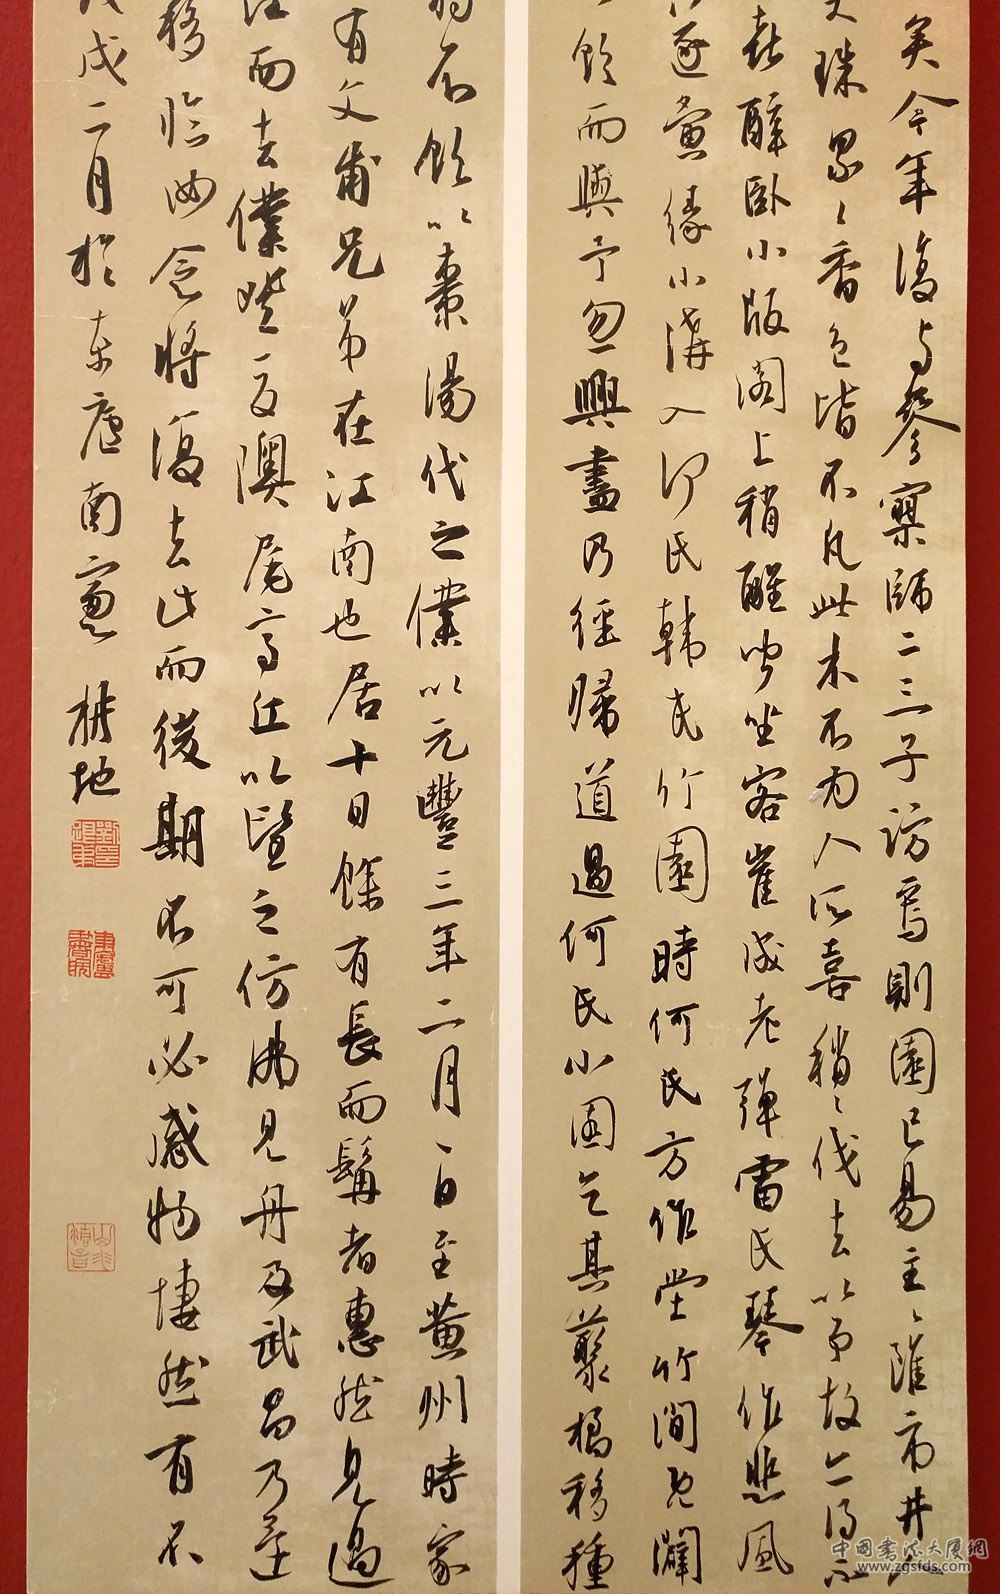 矣今年復与參寥師二三子訪焉則園已易主主雖市井人
珠累累香色皆不凡此木不为人所喜稍稍伐去以予故亦得不
既醉卧小版阁上稍醒聞坐客崔成老彈雷氏琴作悲風
遂夤緣小溝入何氏韩氏竹園時何氏方作堂竹間已闢
飲而與予忽興盡乃徑歸道過何氏小圃乞其藂橘移種
不飲以棗湯代之僕以元豐三年二月一日至黄州時家
有文甫兄弟在江南也居十日餘有長而髯者惠然見過
江而去僕登夏隩尾高丘以望之仿佛見舟及武昌乃还
移临汝念將復去此而後期不可必感物悽然有不
戌二月於东庐南窗 耕地
中国書法大厦網
www.zgsfds.com